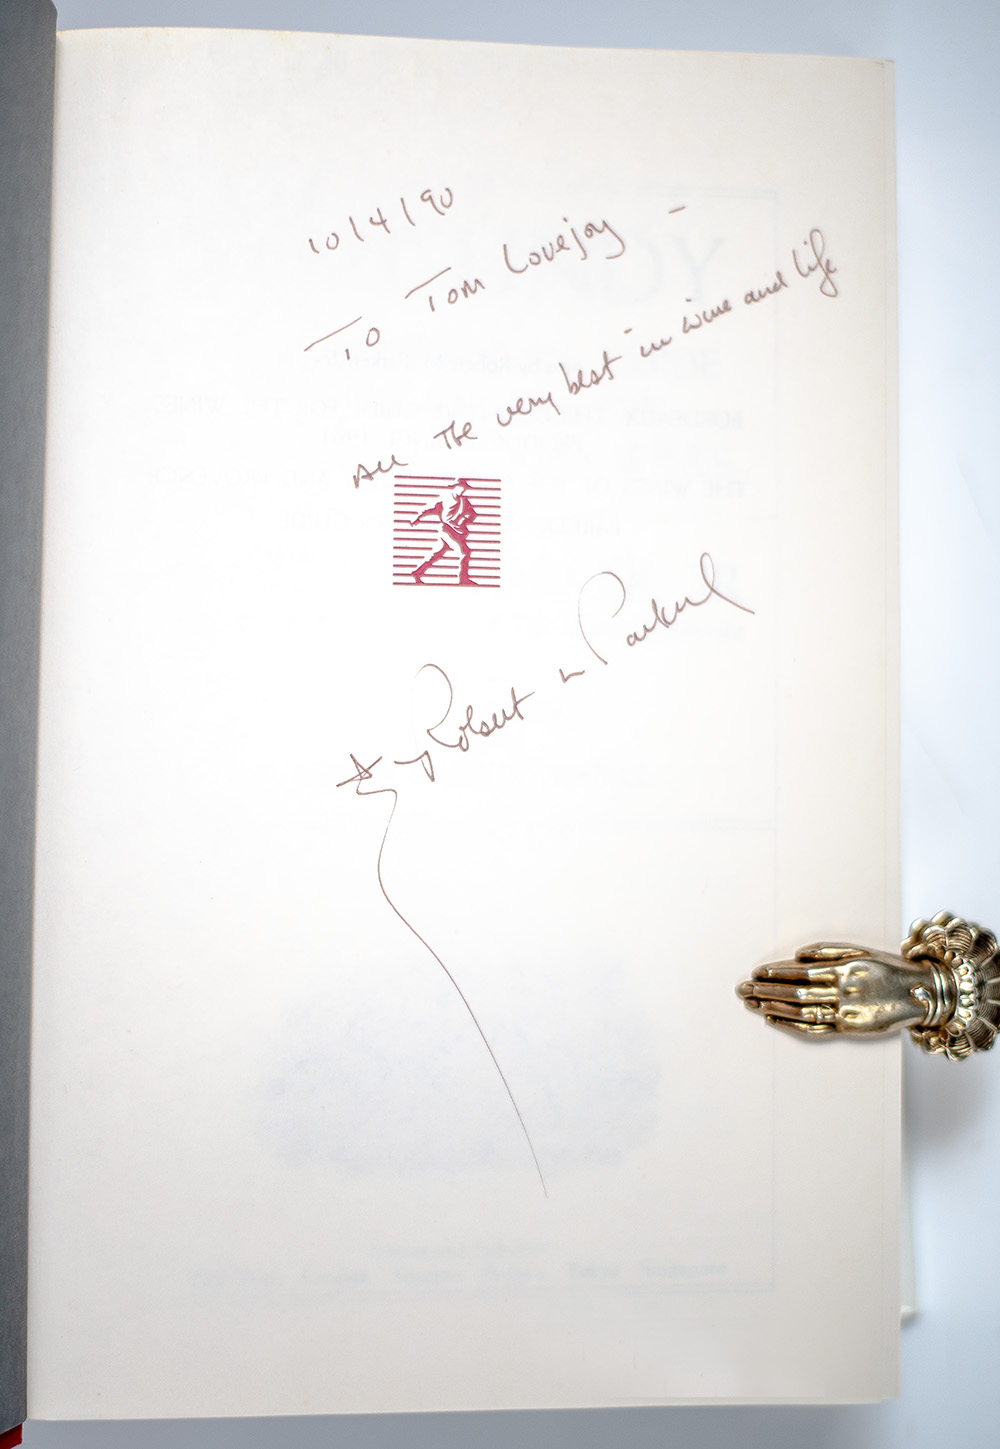 10/4/90
To Tom Lovejoy –
All the very best in wine and life
Robert M Parker